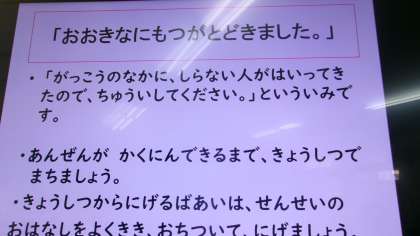 「おおきなにもつがとどきました。」
・「がっこうのなかに、しらない人がはいってき
たので、ちゅういしてください。」といういみで
す。
・あんぜんが　かくにんできるまで、きょうしつで
まちましょう。
・きょうしつからにげるばあいは、せんせいの
おはなしをよくきき、おちついて、にげましょう。